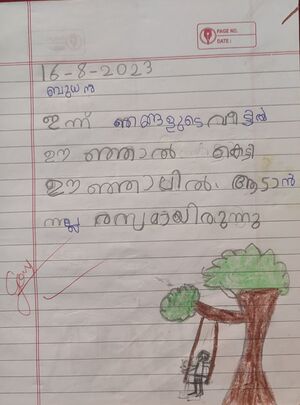 PAGE NO.
DATE:
16-8-2023
ബുധൻ
ഇന്ന് ഞങ്ങളുടെ വീട്ടിൽ
ഊഞ്ഞാൽ കെട്ടി
ഊഞ്ഞാലിൽ ആടാൻ
നല്ല രസമായിരുന്നു